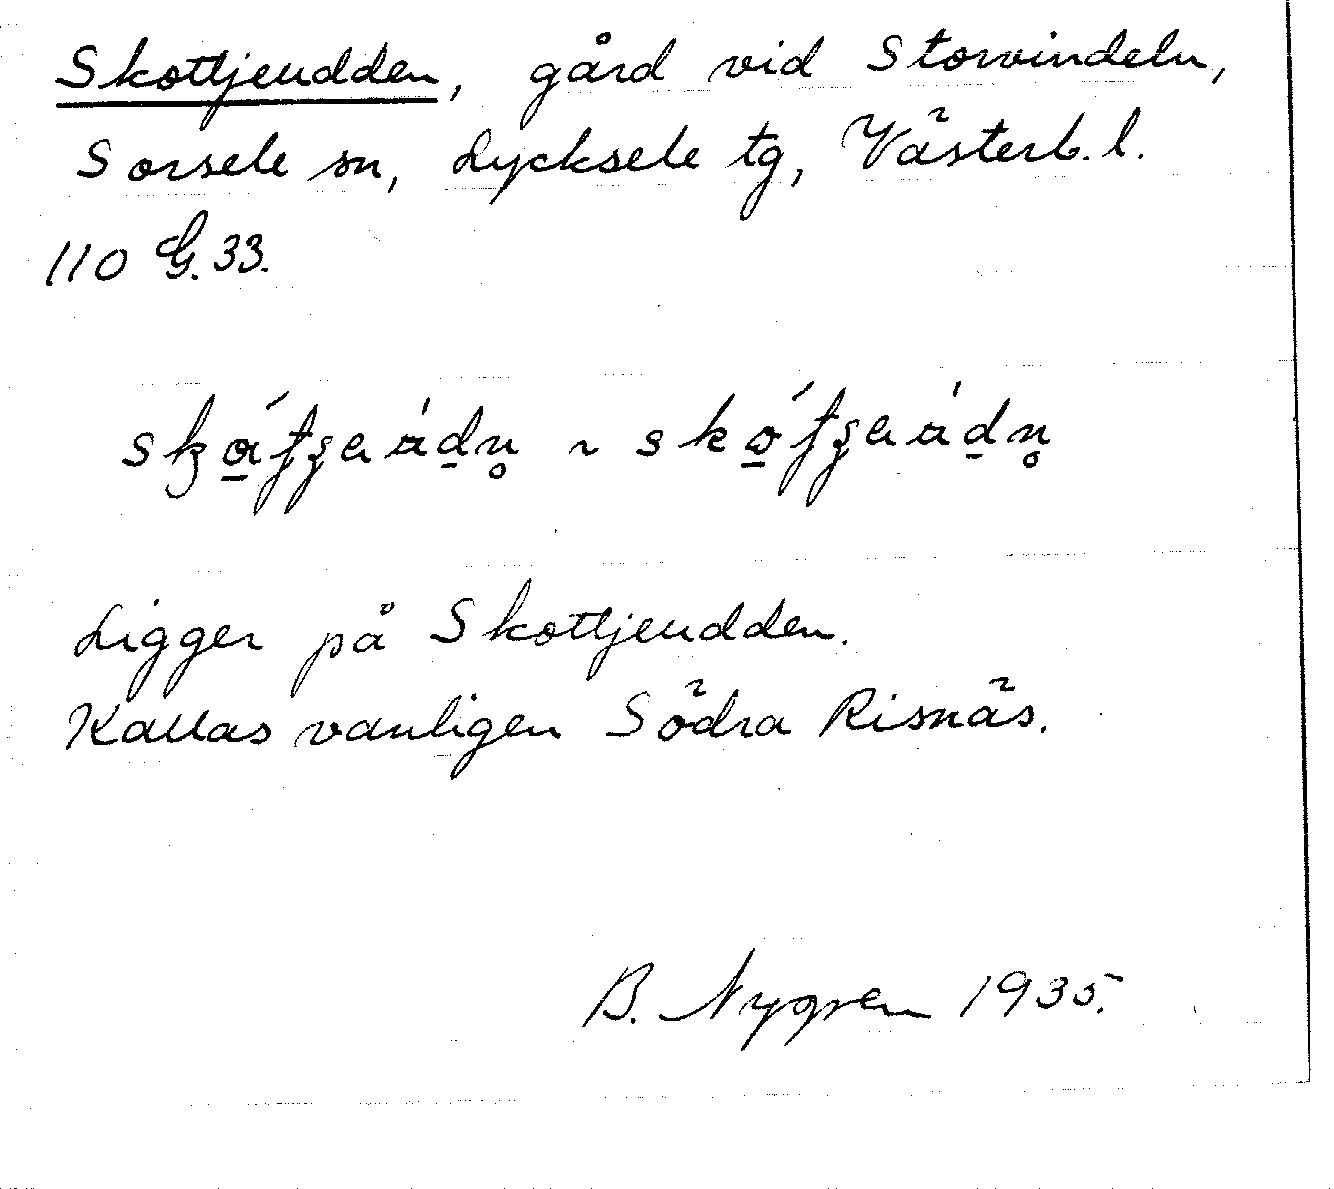 Skottjeudden, gård vid Storvindeln,
Sorsele sn, Lycksele tg, Västerb. l.
110 G. 33.
Ligger på Skottjeudden.
Kallas vanligen Södra Risnäs.
B. Nygren 1935.